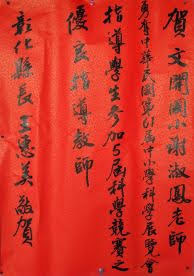 賀文開國小謝淑鳳老師
勇奪中華民國第51屆中小學科學展覽會
指導學生參加5屆科學競賽之
優良指導教師
彰化縣長王惠美敬賀